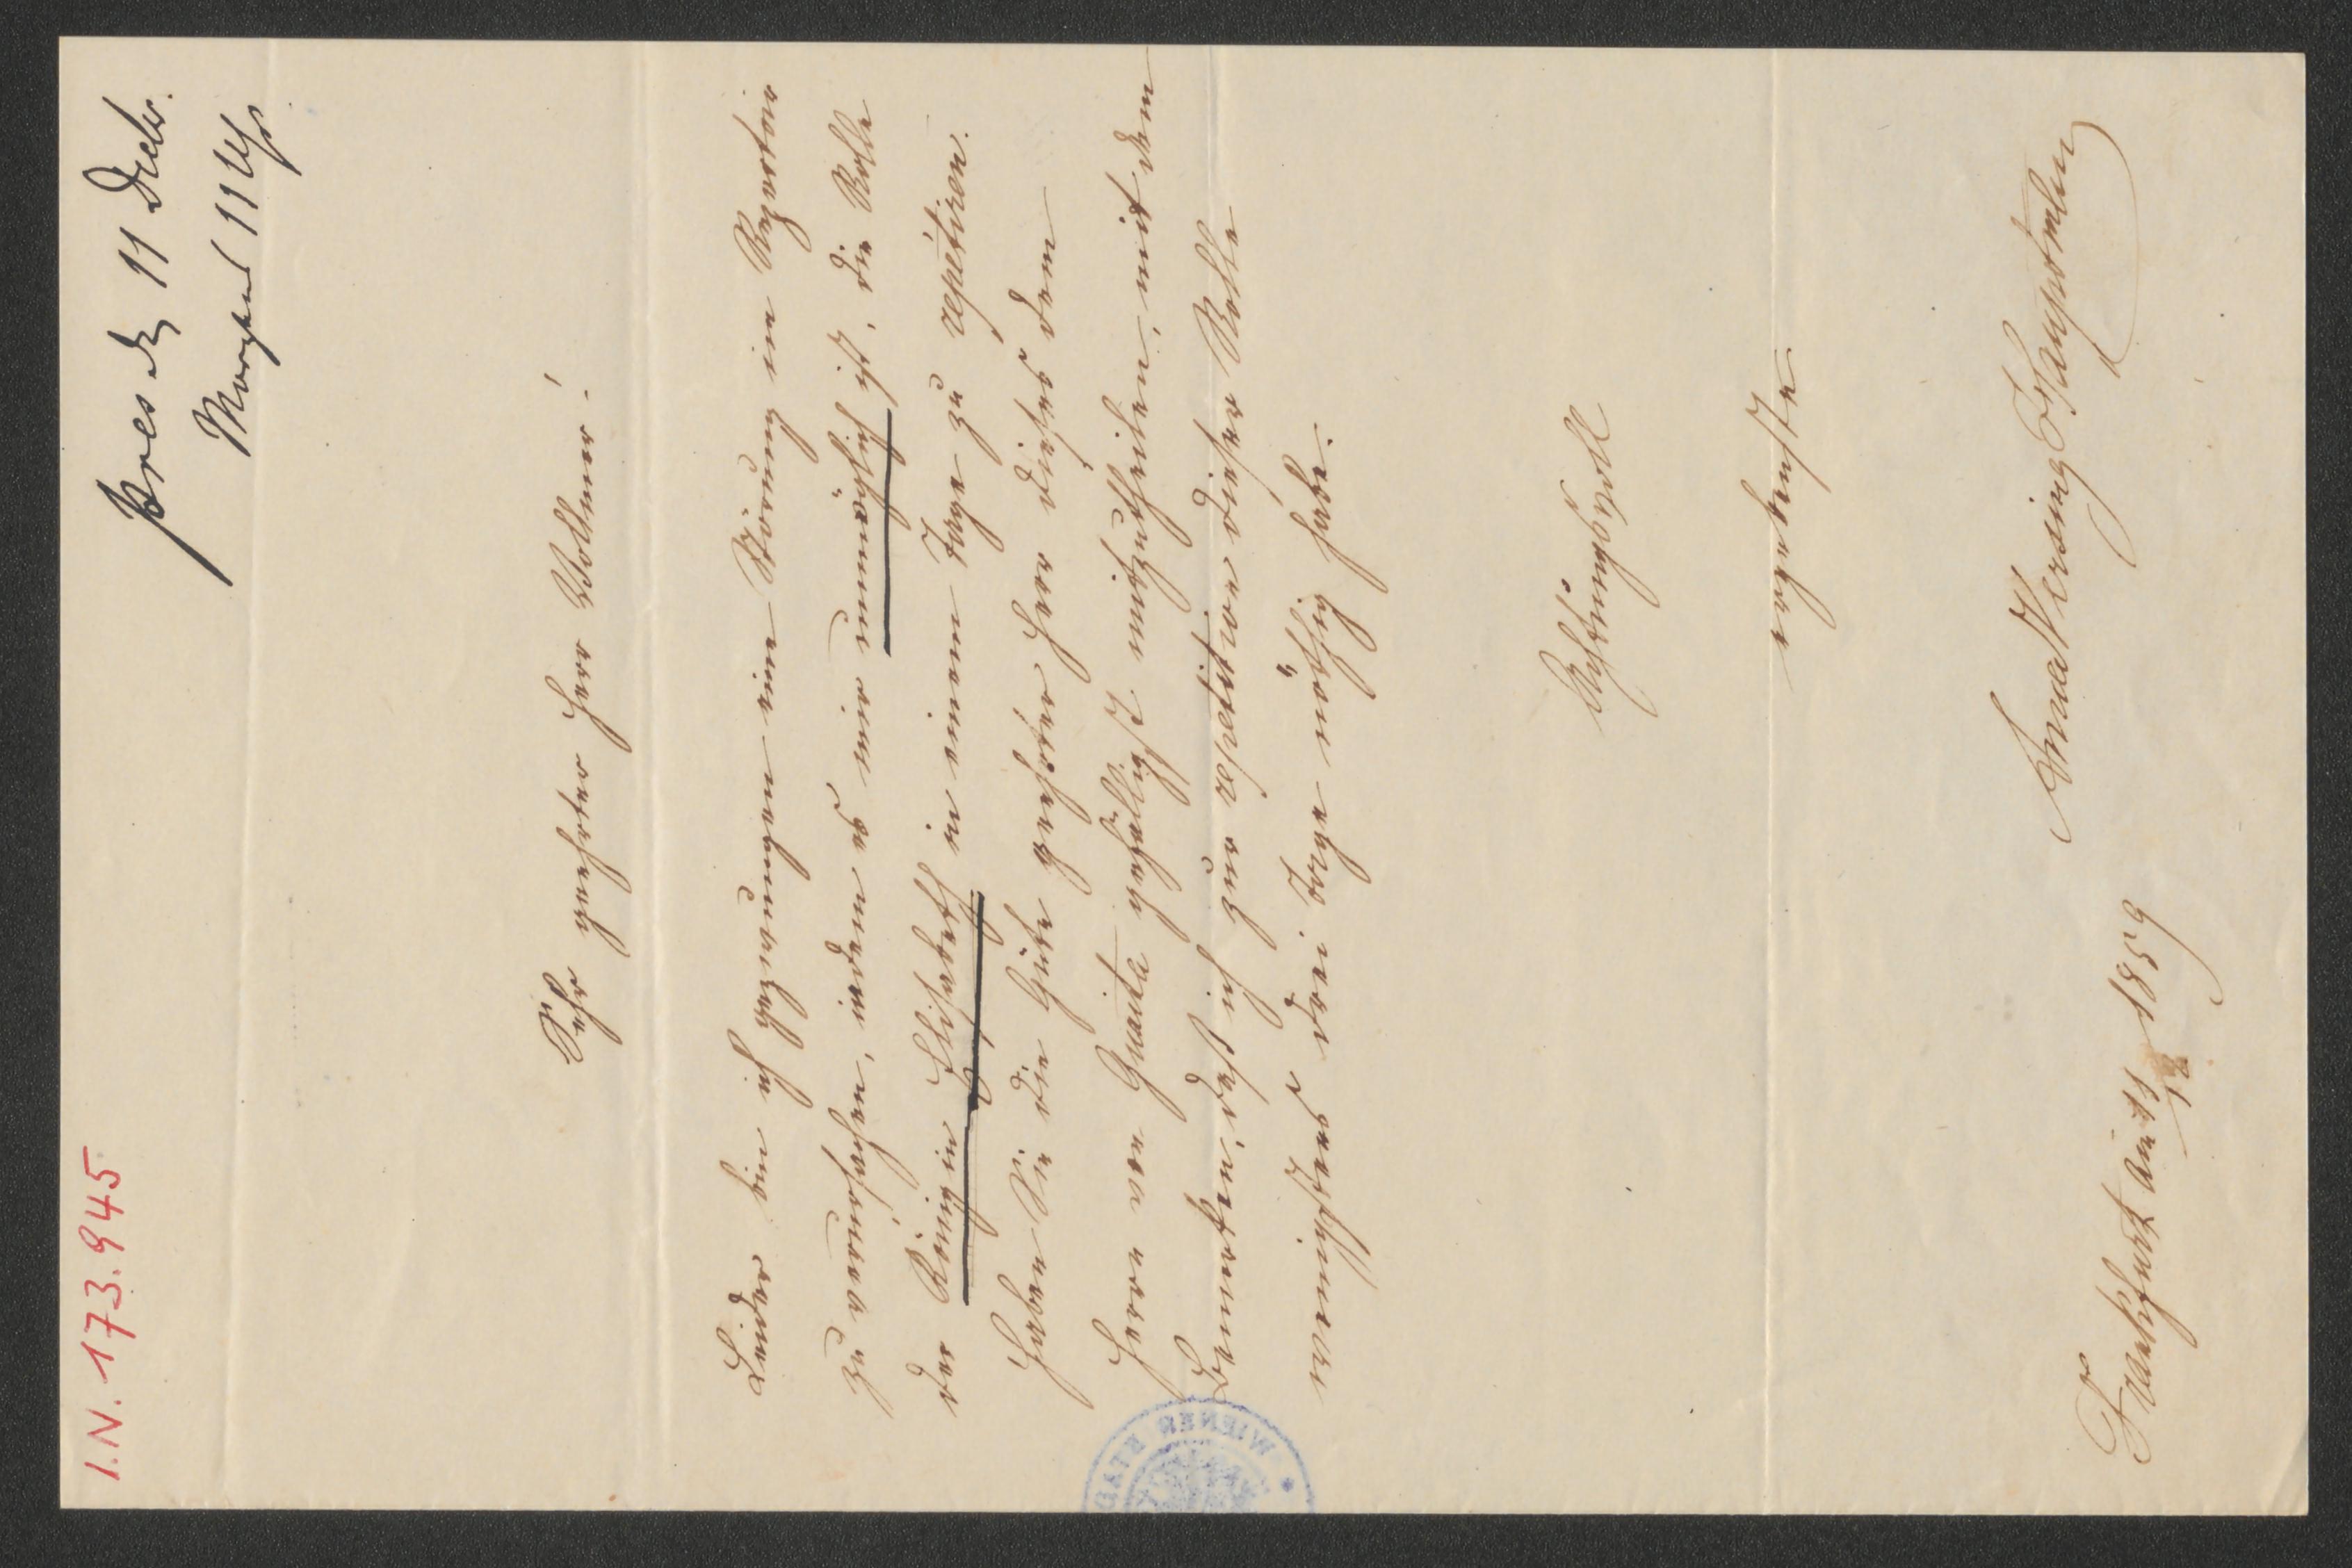 I.N. 173.945
präs d. 11 Decbr.
Morgens 11 Uhr
Sehr geehrter Herr Vollmer!
Leider bin ich gezwungen eine Störung im Repertoir
zu verursachen, indem es mir unmöglich ist, die Rolle
der Königin Elisabeth in einem Tage zu repetiren.
Haben Sie die Güte geehrter Herr dieses dem
Herrn von Guaita gefälligst mitzutheilen, mit dem
Bemerken, daß ich zum repetiren dieser Rolle
wenigstens drei Tage nöthig habe.
Achtungsvoll
ergebenste
Versing Hauptmann
Frankfurt am 11/12 1859
WIENER STADT